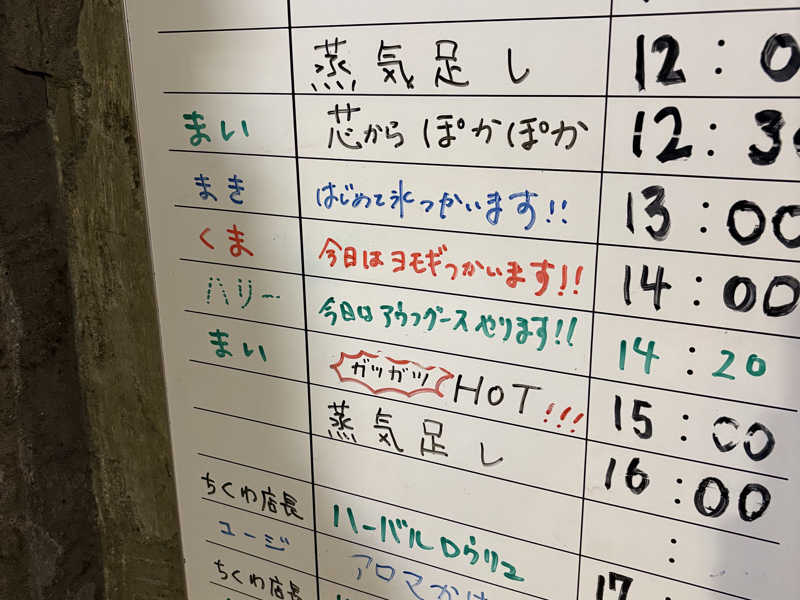 蒸気足し 12:0
まい 芯から ぽかぽか 12:3
まき はじめて氷つかいます!! 13:00
くま 今日はヨモギつかいます!! 14:00
ハリー 今日はアウフグースやります!! 14:20
まい ガツガツ HOT!!! 15:00
蒸気足し 16:00
ちくわ店長 ハーバルロウリュ :
ユージ アロマかけ 17
ちくわ店長